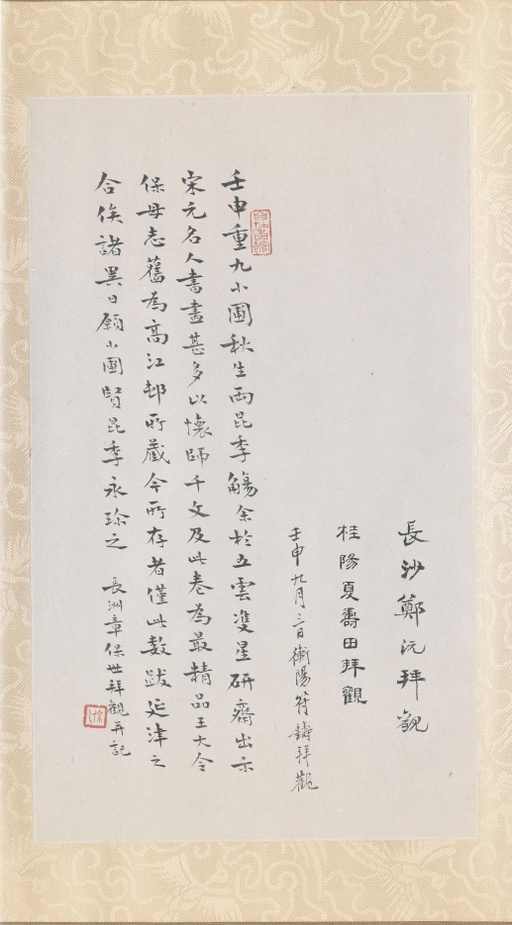 長沙鄭沅拜觀
桂陽夏壽田拜觀
壬申九月三日衡陽符鑄拜觀
壬申重九小圃秋生两昆季觴余於五雲雙星研齋出示
宋元名人書畫甚多以懷師千文及此卷為最精品王大令
保母志舊為高江邨所藏今所存者僅此數跋延津之
合俟諸異日願小圃賢昆季永珍之
長洲章保世拜觀并記